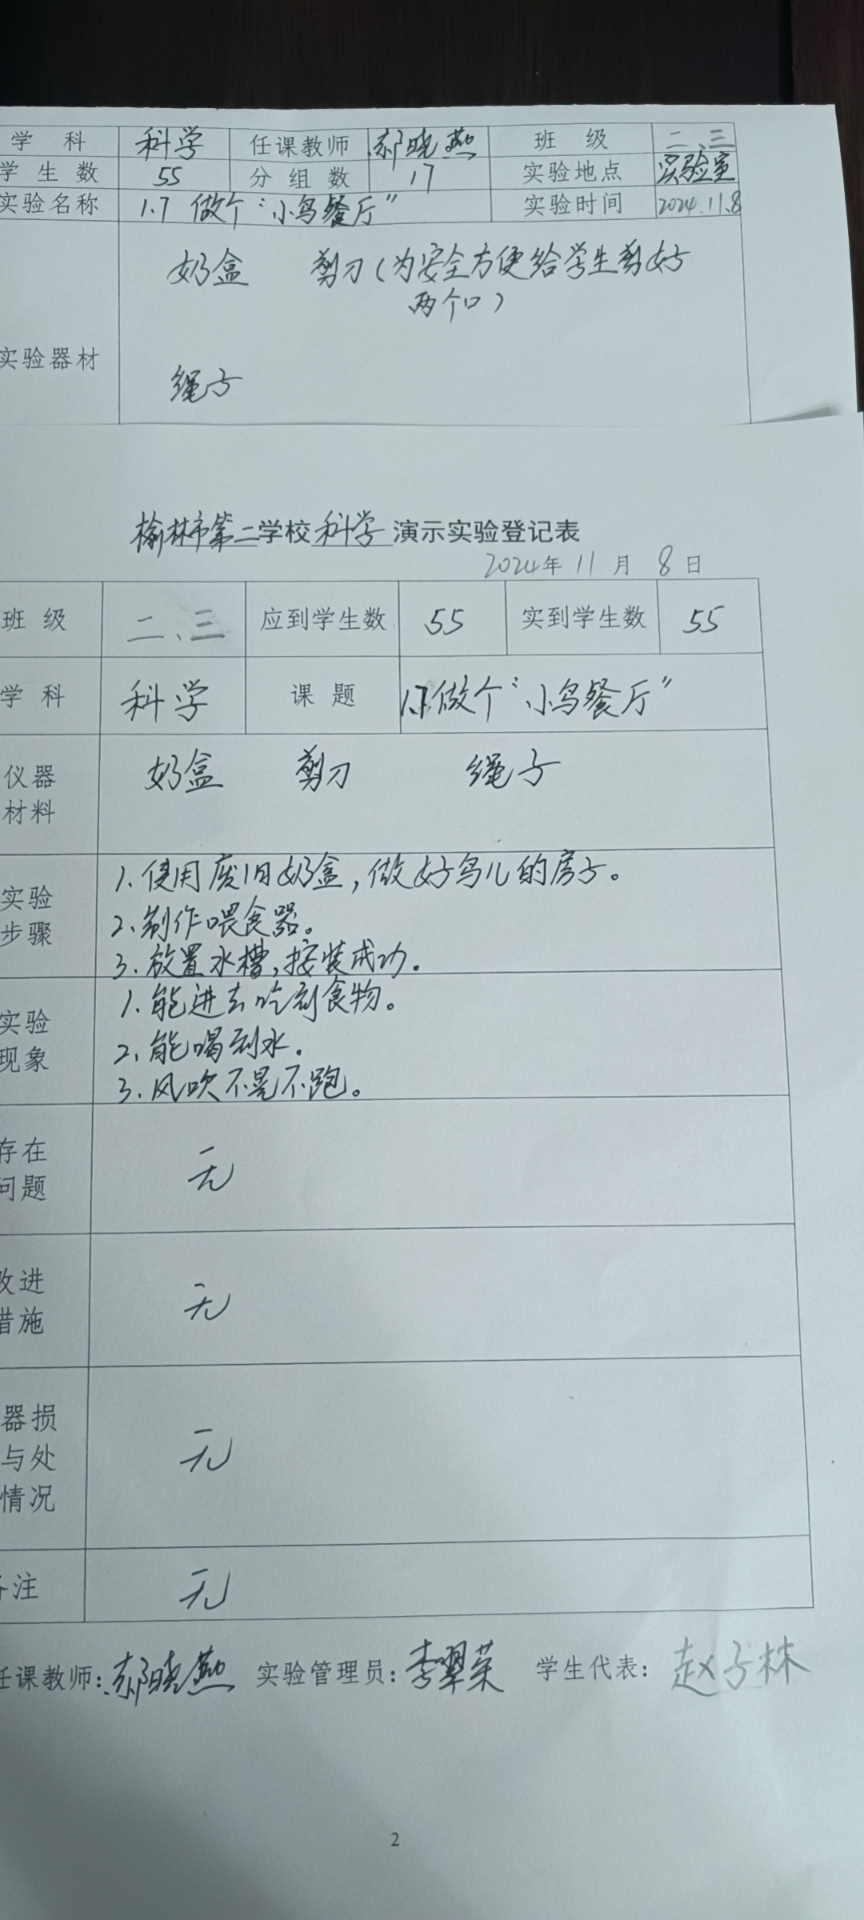 学 科 科学 任课教师 郝晓燕 班 级 二、三
学 生 数 55 分 组 数 17 实验地点 实验室
实验名称 1.7 做个“小鸟餐厅” 实验时间 2024.11.8
奶盒 剪刀(为安全方便给学生剪好
两个口)
实验器材
绳子
榆林市第二学校科学演示实验登记表
2024年 11 月 8 日
班 级 二、三 应到学生数 55 实到学生数 55
学 科 科学 课 题 1.7做个“小鸟餐厅”
仪器 奶盒 剪刀 绳子
材料
实验 1.使用废旧奶盒,做好鸟儿的房子。
步骤 2.制作喂食器。
3.放置水槽,按装成功。
实验 1.能进去吃到食物。
现象 2.能喝到水.
3.风吹不晃不跑。
存在 无
问题
改进 无
措施
器损 无
与处
情况
备注 无
任课教师:郝晓燕 实验管理员:李翠荣 学生代表:赵子林
2